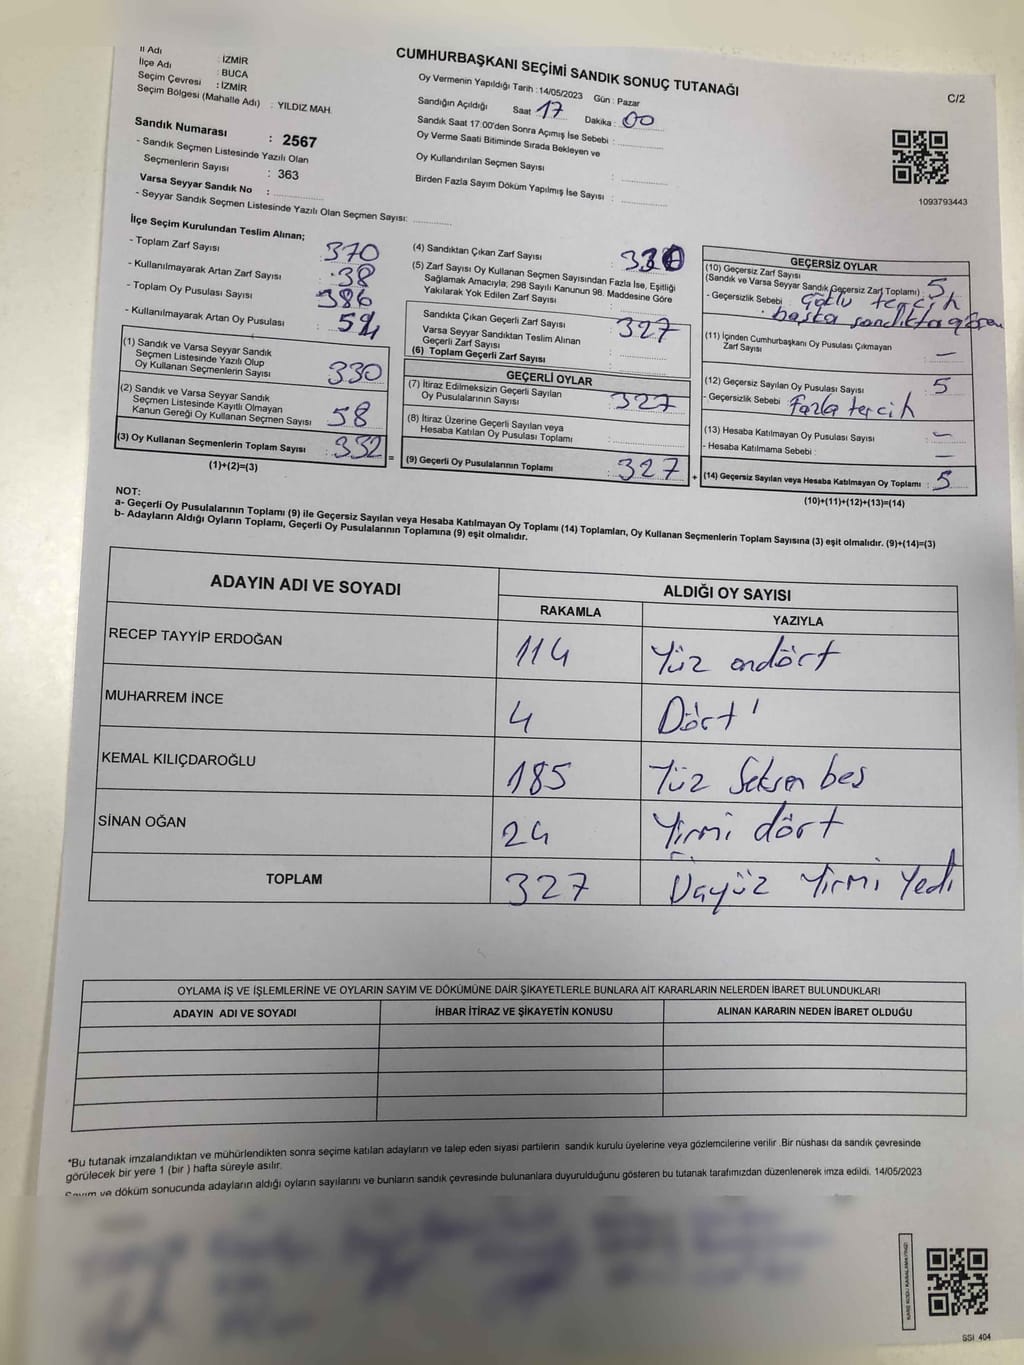 CUMHURBAŞKANI SEÇİMİ SANDIK SONUÇ TUTANAĞI
C/2
İl Adı : İZMİR
İlçe Adı : BUCA
Seçim Çevresi : İZMİR
Seçim Bölgesi (Mahalle Adı) : YILDIZ MAH.
Sandık Numarası : 2567
- Sandık Seçmen Listesinde Yazılı Olan
Seçmenlerin Sayısı : 363
Varsa Seyyar Sandık No :
- Seyyar Sandık Seçmen Listesinde Yazılı Olan Seçmen Sayısı:
Oy Vermenin Yapıldığı Tarih : 14/05/2023 Gün : Pazar
Sandığın Açıldığı Saat 17 Dakika : 00
Sandık Saat 17:00'den Sonra Açılmış İse Sebebi :
Oy Verme Saati Bitiminde Sırada Bekleyen ve
Oy Kullandırılan Seçmen Sayısı :
Birden Fazla Sayım Döküm Yapılmış İse Sayısı :
1093793443
İlçe Seçim Kurulundan Teslim Alınan;
- Toplam Zarf Sayısı : 370
- Kullanılmayarak Artan Zarf Sayısı : 38
- Toplam Oy Pusulası Sayısı : 386
- Kullanılmayarak Artan Oy Pusulası : 54
(1) Sandık ve Varsa Seyyar Sandık
Seçmen Listesinde Yazılı Olup
Oy Kullanan Seçmenlerin Sayısı : 330
(2) Sandık ve Varsa Seyyar Sandık
Seçmen Listesinde Kayıtlı Olmayan
Kanun Gereği Oy Kullanan Seçmen Sayısı : 58
(3) Oy Kullanan Seçmenlerin Toplam Sayısı : 332 =
(1)+(2)=(3)
(4) Sandıktan Çıkan Zarf Sayısı : 330
(5) Zarf Sayısı Oy Kullanan Seçmen Sayısından Fazla İse, Eşitliği
Sağlamak Amacıyla; 298 Sayılı Kanunun 98. Maddesine Göre
Yakılarak Yok Edilen Zarf Sayısı :
Sandıkta Çıkan Geçerli Zarf Sayısı : 327
Varsa Seyyar Sandıktan Teslim Alınan
Geçerli Zarf Sayısı :
(6) Toplam Geçerli Zarf Sayısı :
GEÇERLİ OYLAR
(7) İtiraz Edilmeksizin Geçerli Sayılan
Oy Pusulalarının Sayısı : 327
(8) İtiraz Üzerine Geçerli Sayılan veya
Hesaba Katılan Oy Pusulası Toplamı :
(9) Geçerli Oy Pusulalarının Toplamı : 327 +
GEÇERSİZ OYLAR
(10) Geçersiz Zarf Sayısı
(Sandık ve Varsa Seyyar Sandık Geçersiz Zarf Toplamı) : 5
- Geçersizlik Sebebi : tercih
başka sandıkta
(11) İçinden Cumhurbaşkanı Oy Pusulası Çıkmayan
Zarf Sayısı : —
(12) Geçersiz Sayılan Oy Pusulası Sayısı : 5
- Geçersizlik Sebebi : Fazla tercih
(13) Hesaba Katılmayan Oy Pusulası Sayısı : —
- Hesaba Katılmama Sebebi : —
(14) Geçersiz Sayılan veya Hesaba Katılmayan Oy Toplamı : 5
(10)+(11)+(12)+(13)=(14)
NOT:
a- Geçerli Oy Pusulalarının Toplamı (9) ile Geçersiz Sayılan veya Hesaba Katılmayan Oy Toplamı (14) Toplamları, Oy Kullanan Seçmenlerin Toplam Sayısına (3) eşit olmalıdır. (9)+(14)=(3)
b- Adayların Aldığı Oyların Toplamı, Geçerli Oy Pusulalarının Toplamına (9) eşit olmalıdır.
ADAYIN ADI VE SOYADI ALDIĞI OY SAYISI
RAKAMLA YAZIYLA
RECEP TAYYİP ERDOĞAN 114 Yüz ondört
MUHARREM İNCE 4 Dört
KEMAL KILIÇDAROĞLU 185 Yüz Seksen beş
SİNAN OĞAN 24 Yirmi dört
TOPLAM 327 Üçyüz Yirmi Yedi
OYLAMA İŞ VE İŞLEMLERİNE VE OYLARIN SAYIM VE DÖKÜMÜNE DAİR ŞİKAYETLERLE BUNLARA AİT KARARLARIN NELERDEN İBARET BULUNDUKLARI
ADAYIN ADI VE SOYADI İHBAR İTİRAZ VE ŞİKAYETİN KONUSU ALINAN KARARIN NEDEN İBARET OLDUĞU
*Bu tutanak imzalandıktan ve mühürlendikten sonra seçime katılan adayların ve talep eden siyasi partilerin sandık kurulu üyelerine veya gözlemcilerine verilir .Bir nüshası da sandık çevresinde
görülecek bir yere 1 (bir ) hafta süreyle asılır.
Sayım ve döküm sonucunda adayların aldığı oyların sayılarını ve bunların sandık çevresinde bulunanlara duyurulduğunu gösteren bu tutanak tarafımızdan düzenlenerek imza edildi. 14/05/2023
SSİ 404